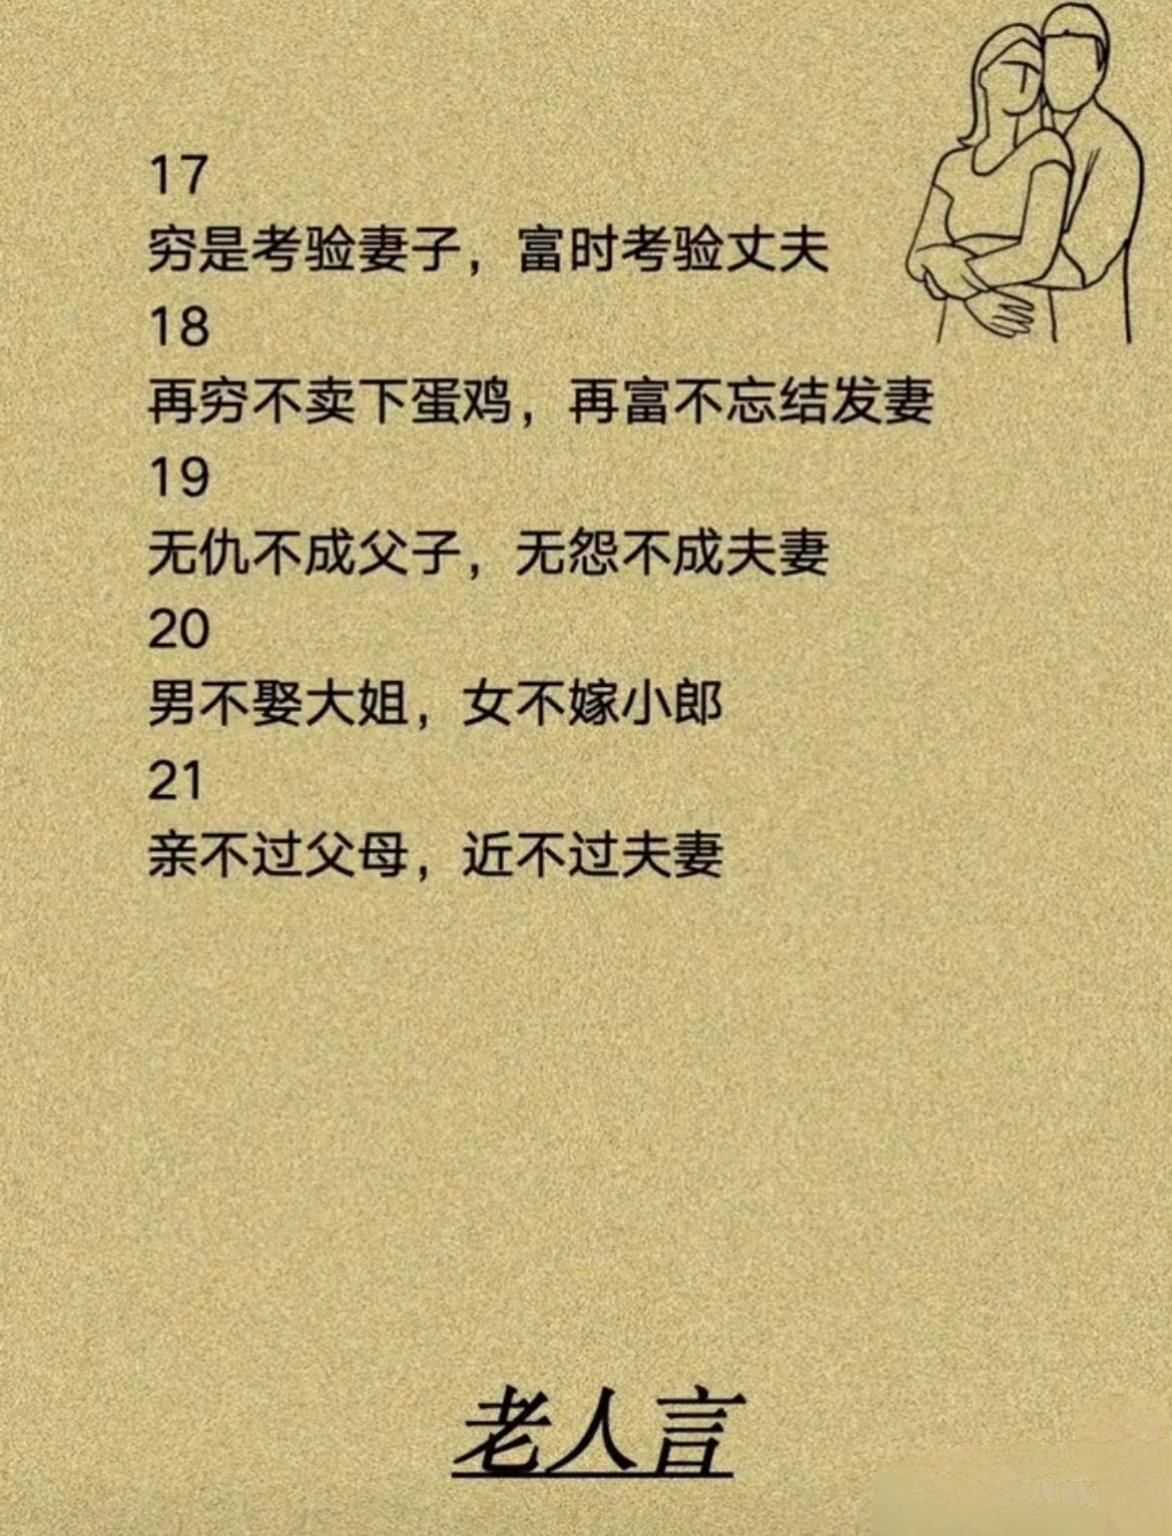 17
穷是考验妻子，富时考验丈夫
18
再穷不卖下蛋鸡，再富不忘结发妻
19
无仇不成父子，无怨不成夫妻
20
男不娶大姐，女不嫁小郎
21
亲不过父母，近不过夫妻
老人言